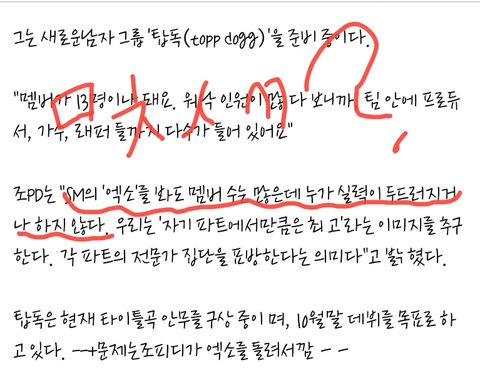 그는 새로운남자 그룹 '탑독(topp dogg)'을 준비 중이다.
"멤버가 13명이나 돼요. 워낙 인원이 많다 보니까 팀 안에 프로듀
서, 가수, 래퍼 들까지 다수가 들어 있어요"
조PD는 "SM의 '엑소'를 봐도 멤버 수는 많은데 누가 실력이 두드러지거
나 하지 않다. 우리는 '자기 파트에서만큼은 최고'라는 이미지를 추구
한다. 각 파트의 전문가 집단을 표방한다는 의미다"고 밝혔다.
탑독은 현재 타이틀곡 안무를 구상 중이며, 10월말 데뷔를 목표로 하
고 있다. ㅡ+문제는조피디가 엑소를 돌려서깜 ㅡㅡ